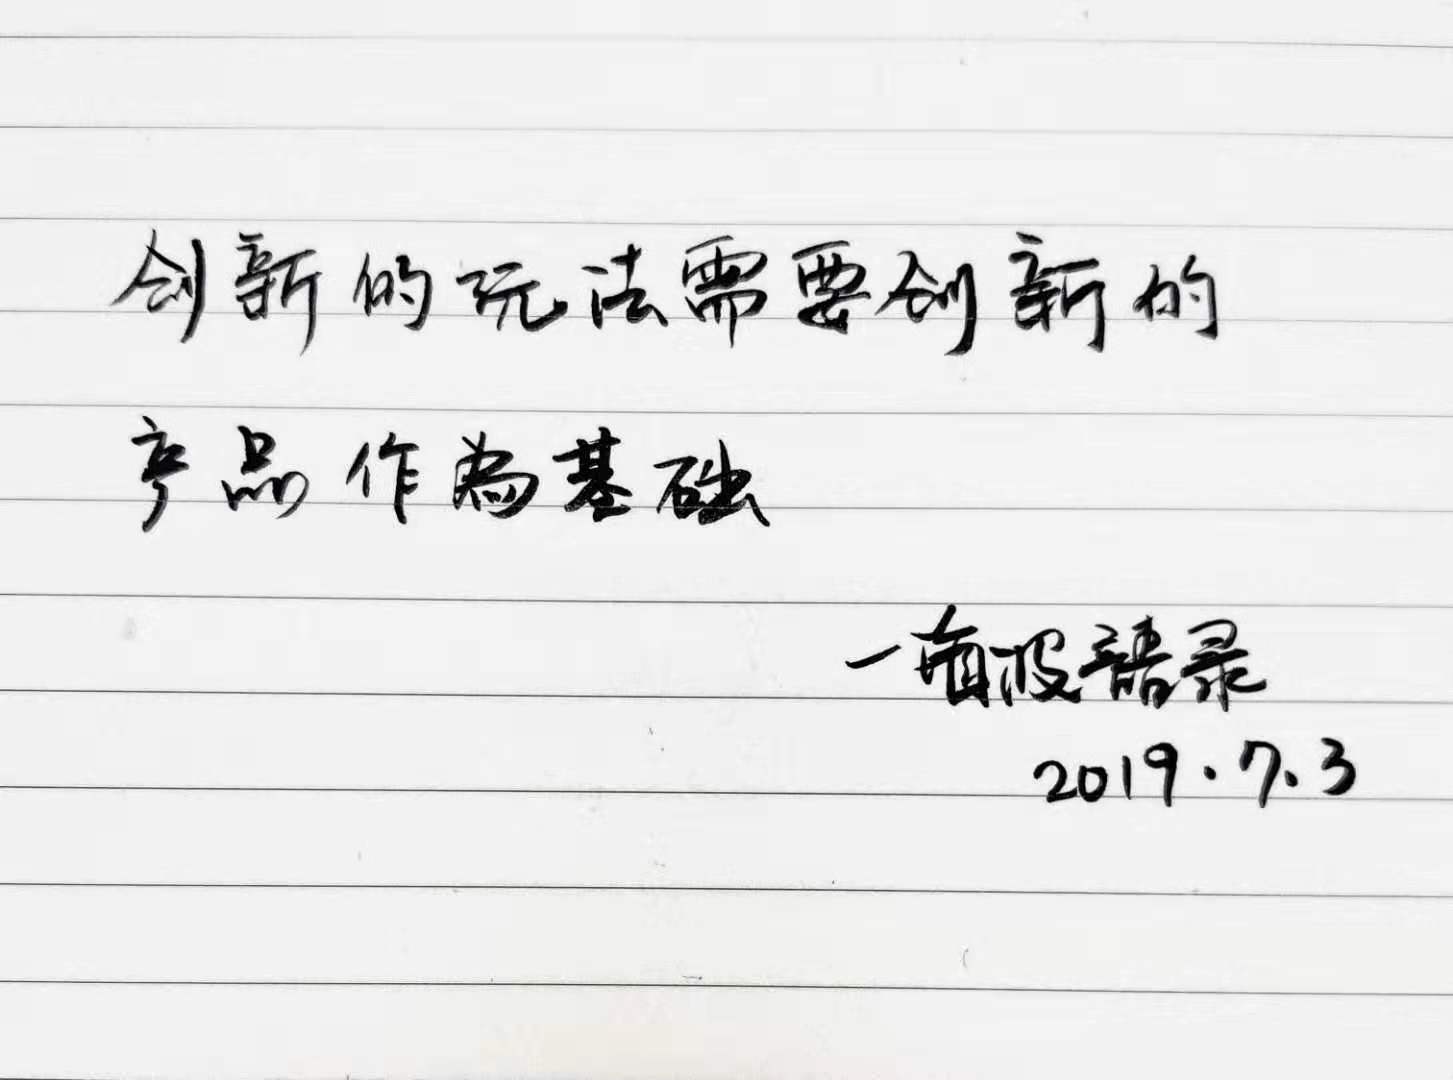 创新的玩法需要创新的
产品作为基础
一有波语录
2019.7.3